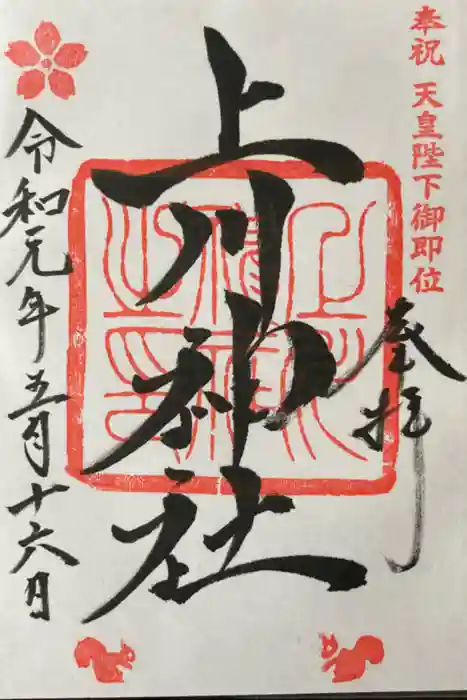 奉祝 天皇陛下御即位
奉拝
上川神社
令和元年五月十六日
上川神社之印